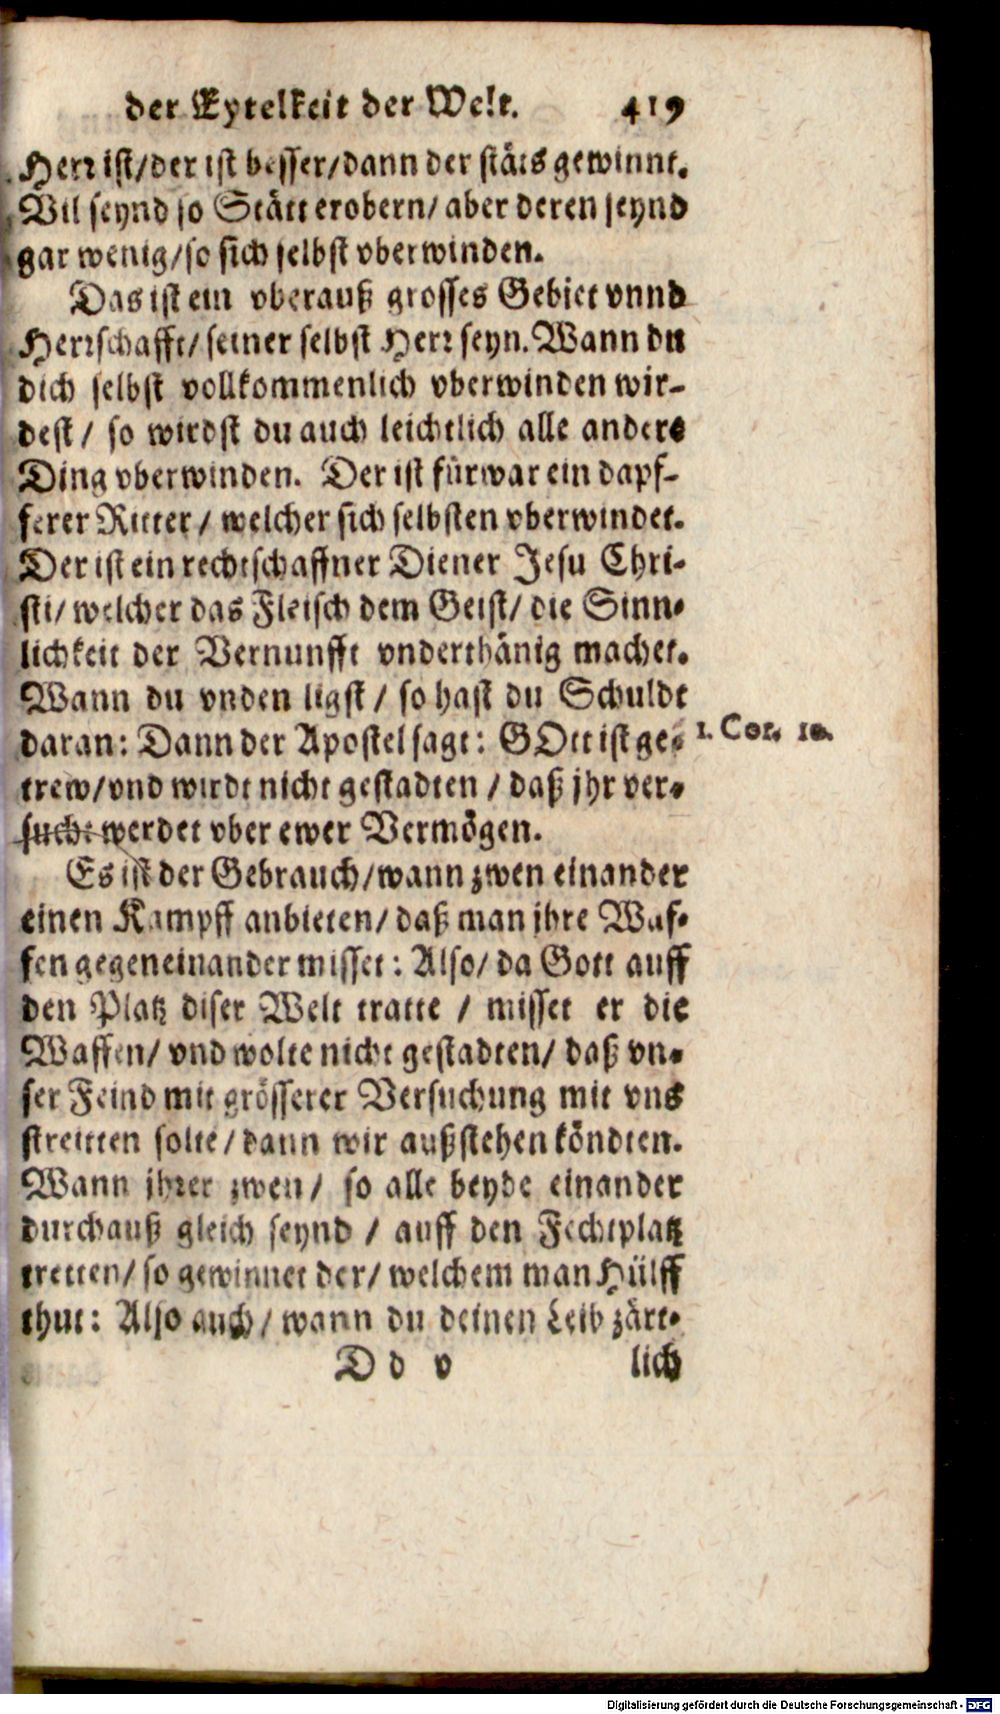 der Eytelkeit der Welt. 419
Herr ist/der ist besser/dann der stäts gewinnt.
Vil seynd so Stätt erobern/ aber deren seynd
gar wenig/so sich selbst vberwinden.
Das ist ein vberauß grosses Gebiet vnnd
Herrschafft/ seiner selbst Herr seyn. Wann du
dich selbst vollkommenlich vberwinden wir-
dest / so wirdst du auch leichtlich alle andere
Ding vberwinden. Der ist fürwar ein dapf-
ferer Ritter / welcher sich selbsten vberwindet.
Der ist ein rechtschaffner Diener Jesu Chri-
sti/ welcher das Fleisch dem Geist/ die Sinn-
lichkeit der Vernunfft vnderthänig machet.
Wann du vnden ligst / so hast du Schuldt
daran: Dann der Apostel sagt: GOtt ist ge-
1. Cor. 10.
trew/vnd wirdt nicht gestadten / daß jhr ver-
sucht werdet vber ewer Vermögen.
Es ist der Gebrauch/wann zwen einander
einen Kampff anbieten/ daß man jhre Waf-
fen gegeneinander misset: Also/ da Gott auff
den Platz diser Welt tratte / misset er die
Waffen/ vnd wolte nicht gestadten/ daß vn-
ser Feind mit grösserer Versuchung mit vns
streitten solte/ dann wir außstehen köndten.
Wann jhrer zwen/ so alle beyde einander
durchauß gleich seynd / auff den Fechtplatz
tretten/ so gewinnet der/ welchem man Hülff
thut: Also auch/ wann du deinen Leib zärt-
D d v lich
Digitalisierung gefördert durch die Deutsche Forschungsgemeinschaft - DFG